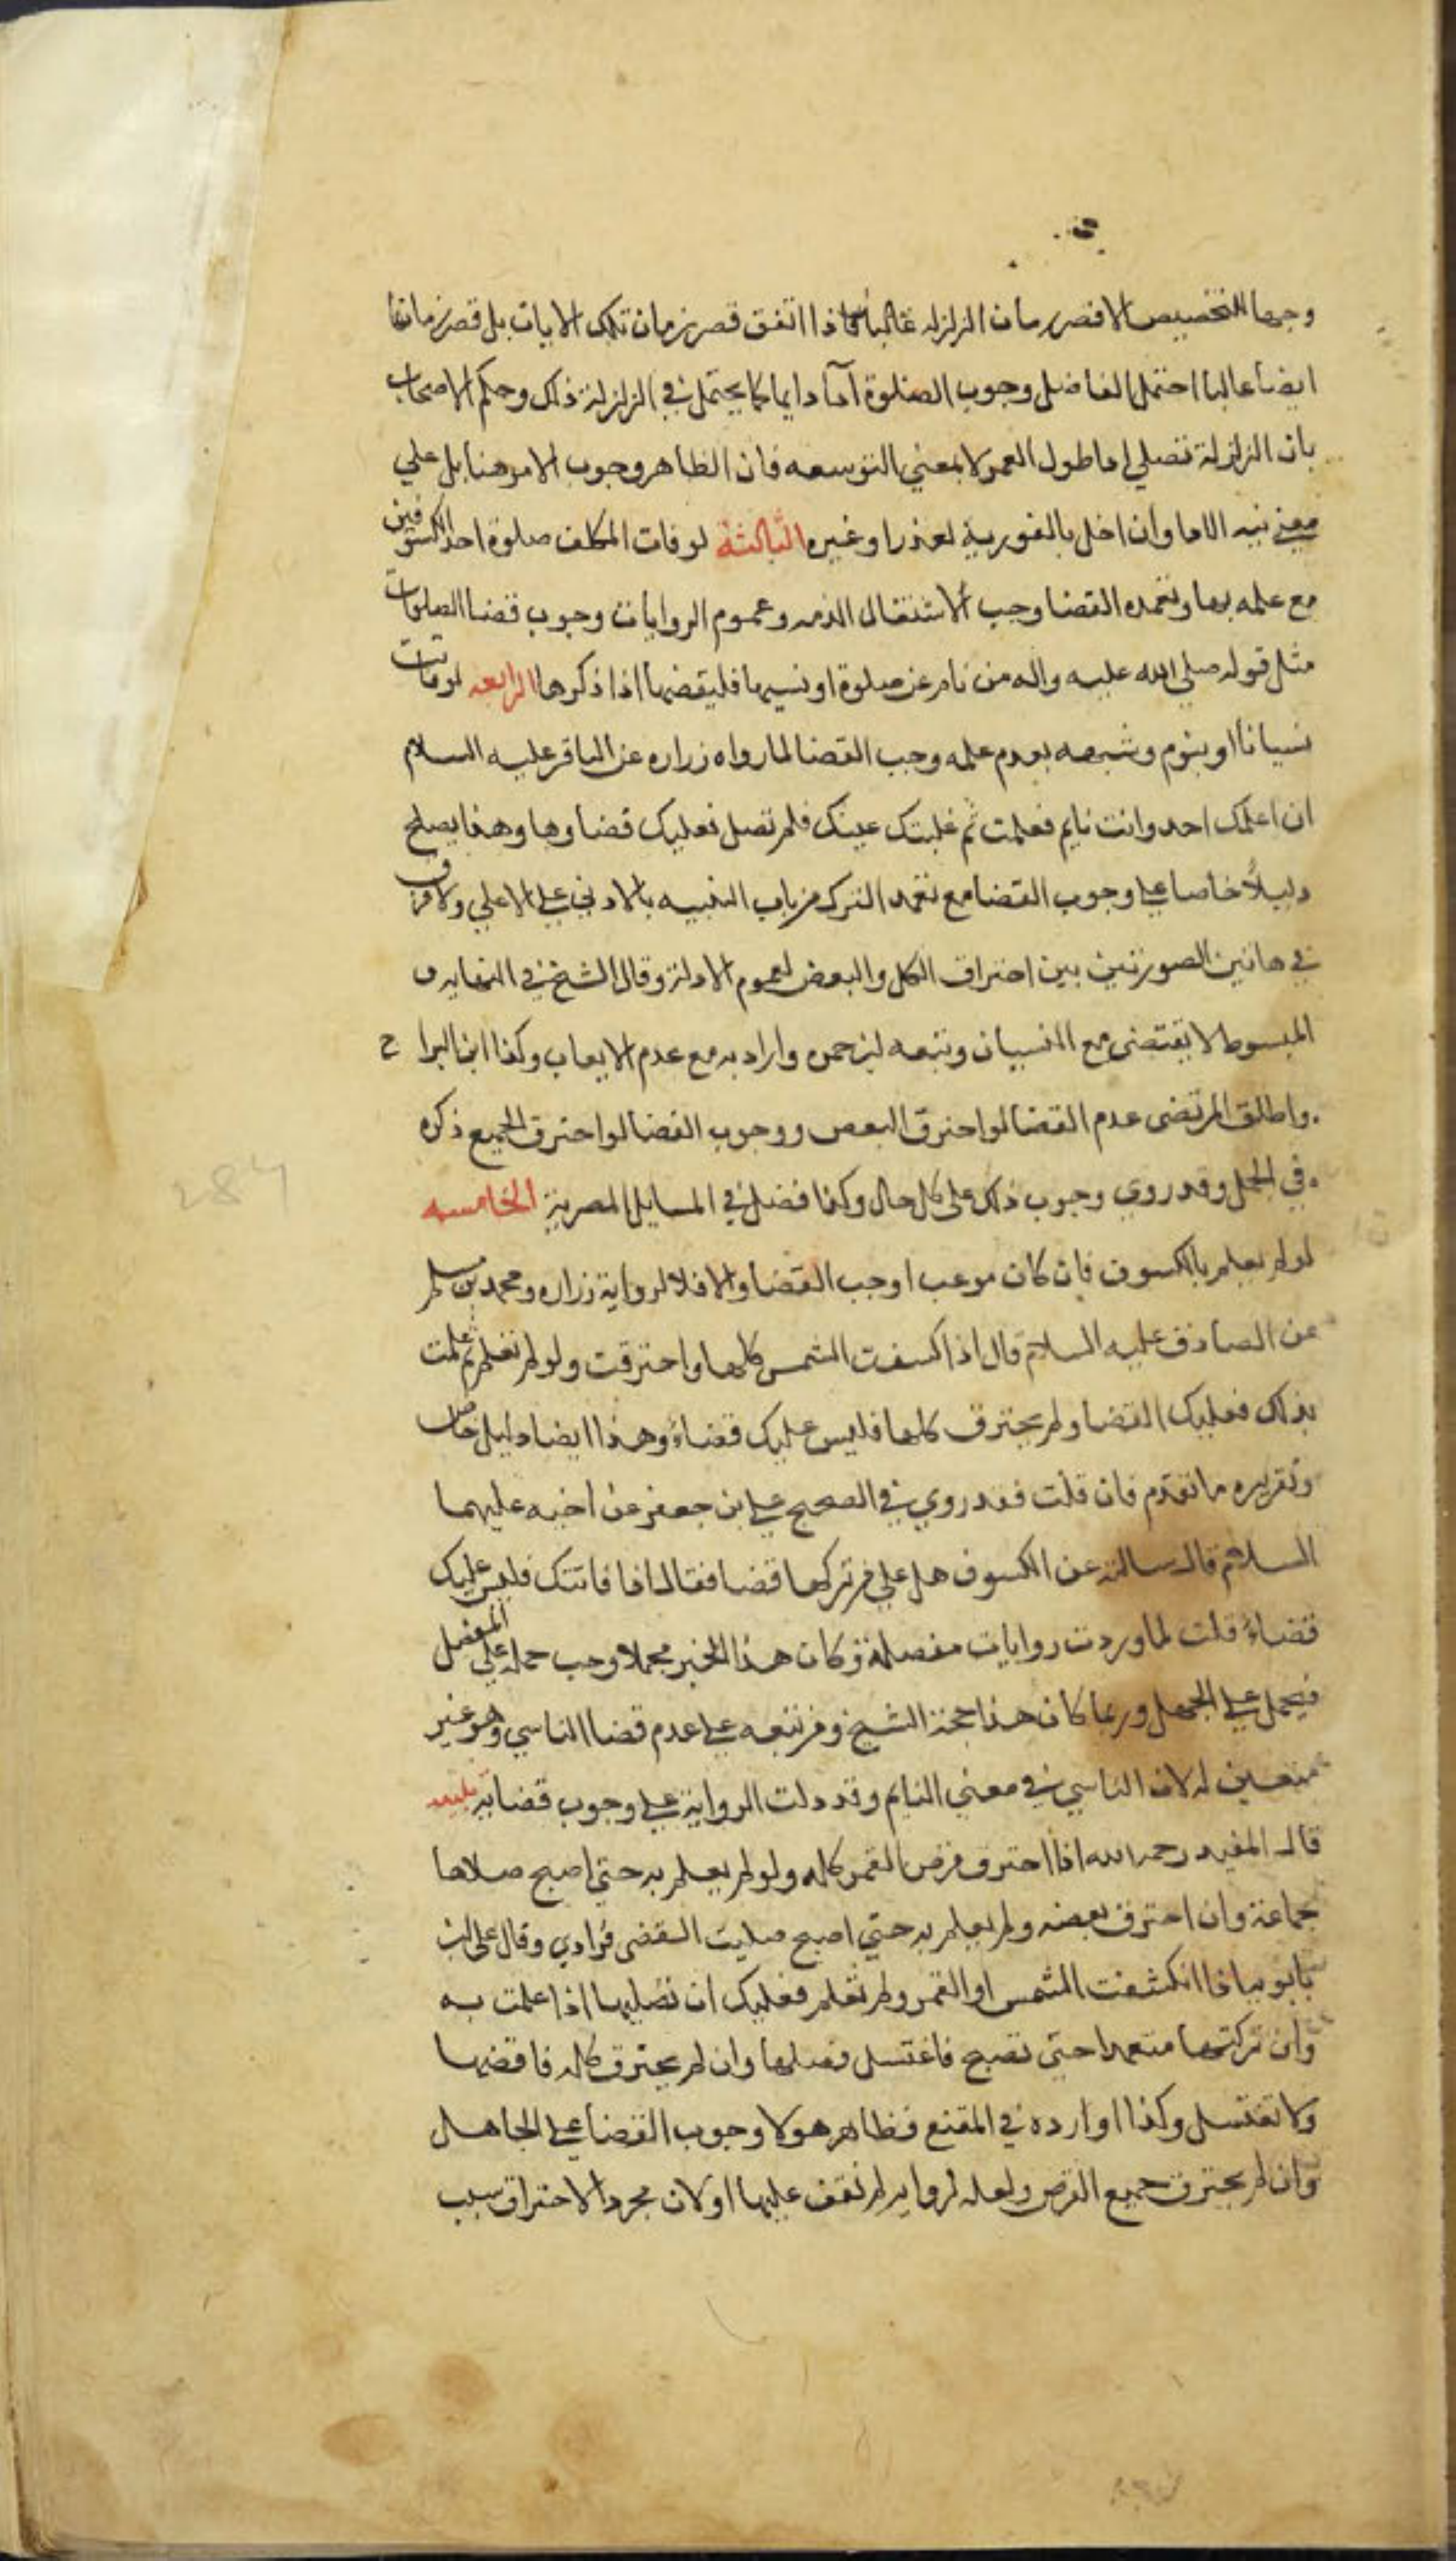 وجها للتخصيص الا قصر زمان الزلزله غالبا فاذا اتفق قصر زمان تلك الايات بل قصر زمانها
ايضا غالبا احتمل الفاضل وجوب الصلوة اداء دايما كما يحتمل في الزلزلة ذلك وحكم الاصحاب
بان الزلزلة تصلي اداطول العمر لا بمعني التوسعه فان الظاهر وجوب الامر هنا بل علي
معني نيه الادا وان اخل بالفورية لعذر او غيره الثالثة لو فات المكلف صلوة احد الكسوفين
مع علمه بها وتعمده القضا وجب لاشتغال الذمه وعموم الروايات وجوب قضا الصلوات
مثل قوله صلي الله عليه واله من نام عن صلوة او نسيها فليقضها اذا ذكرها الرابعه لو فاتت
نسيانا او بنوم وشبهه بعدم علمه وجب القضا لما رواه زراره عن الباقر عليه السلام
ان اعلمك احد وانت نايم فعلمت ثم غلبتك عينك فلم تصل فعليك قضاوها وهذا يصلح
دليلا خاصا علي وجوب القضا مع تعمد الترك من باب التنبيه بالادني علي الاعلي ولا فرق
في هاتين الصورتين بين احتراق الكل والبعض لعموم الادلة وقال الشيخ في النهايه و
المبسوط لا يقتضى مع النسيان وتبعه ابن حمزه واراد به مع عدم الايعاب وكذا ابن البراج
واطلق المرتضى عدم القضا لو احترق البعض ووجوب القضا لو احترق الجميع ذكره
في الجمل وقد روي وجوب ذلك على كل حال وكذا فصل في المسايل المصرية الخامسه
لو لم يعلم بالكسوف فان كان موعبا وجب القضا والا فلا لرواية زراره ومحمد بن مسلم
عن الصادق عليه السلام قال اذا كسفت الشمس كلها واحترقت ولو لم تعلم ثم علمت
بذلك فعليك القضا ولم يحترق كلها فليس عليك قضاء وهذا ايضا دليل خاص
وتقريره ما تقدم فان قلت فقد روي في الصحيح علي بن جعفر عن اخيه عليهما
السلام قال سالته عن الكسوف هل علي من تركها قضا فقال اذا فاتتك فليس عليك
قضاء قلت لما وردت روايات مفصلة وكان هذا الخبر مجملا وجب حمله علي المفصل
فيحمل علي الجهل وربما كان هذا حجة الشيخ ومن تبعه علي عدم قضا الناسي وهو غير
متعين له لان الناسي في معني النايم وقد دلت الرواية علي وجوب قضايه
قال المفيد رحمه الله اذا احترق قرص القمر كله ولو لم يعلم به حتي اصبح صلاها
جماعة وان احترق بعضه ولم يعلم به حتي اصبح صليت القضى فرادي وقال علي ابن
بابويه اذا انكشفت الشمس او القمر ولم تعلم فعليك ان تصليها اذا علمت به
وان تركتها متعمدا حتى تصبح فاغتسل فصلها وان لم يحترق كله فاقضها
ولا تغتسل وكذا اورده في المقنع فظاهر هولا وجوب القضا علي الجاهل
وان لم يحترق جميع القرص ولعله لروايه لم نقف عليها او لان مجرد الاحتراق سبب